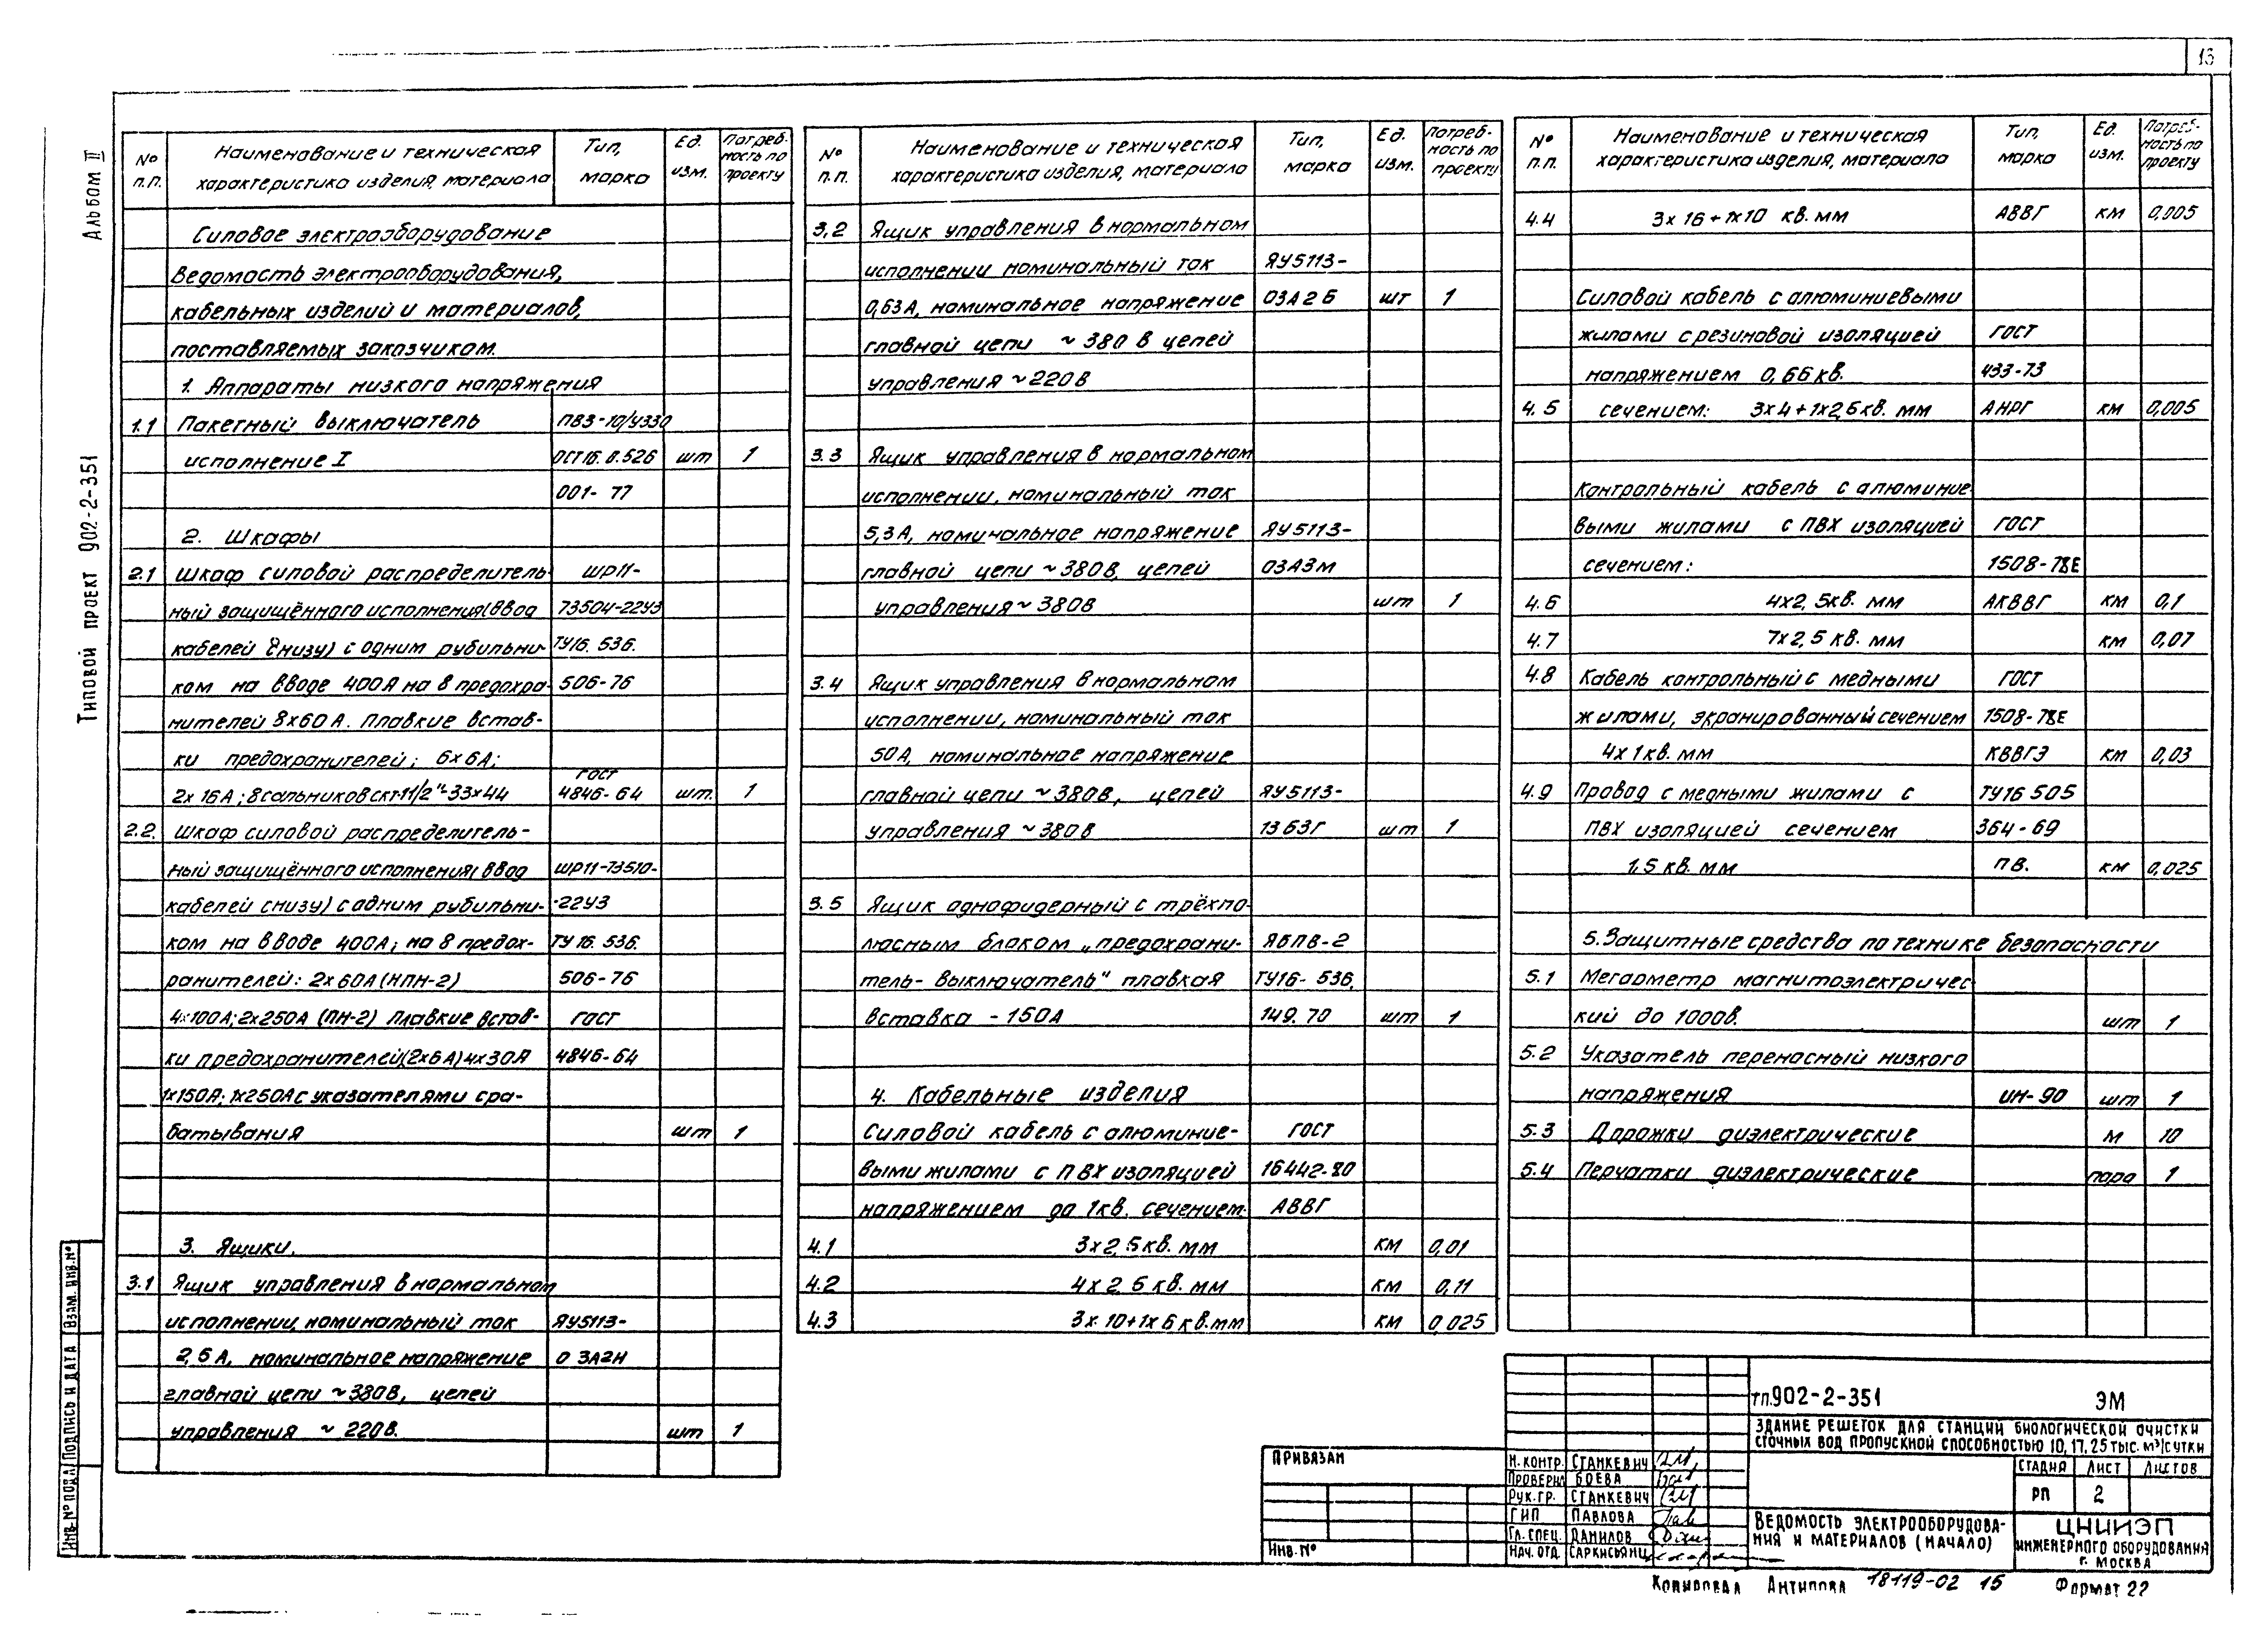 13
Альбом II
Типовой проект 902-2-351
№ п.п. | Наименование и техническая характеристика изделия, материала | Тип, марка | Ед. изм. | Потребность по проекту
Силовое электрооборудование
Ведомость электрооборудования,
кабельных изделий и материалов,
поставляемых заказчиком.
1. Аппараты низкого напряжения
1.1 Пакетный выключатель ПВ3-10/У330
исполнение I ОСТ16.0.526 шт 1
001-77
2. Шкафы
2.1 Шкаф силовой распределитель- ШР11-
ный защищённого исполнения(ввод 73504-22У3
кабелей снизу) с одним рубильни- ТУ16.536.
ком на вводе 400А на 8 предохра- 506-76
нителей 8х60А. Плавкие встав-
ки предохранителей; 6х6А; ГОСТ
2х16А; 8 сальников скт-11/2"-33х44 4846-64 шт. 1
2.2. Шкаф силовой распределитель-
ный защищённого исполнения(ввод ШР11-73510-
кабелей снизу) с одним рубильни- -22У3
ком на вводе 400А; на 8 предох- ТУ16.536.
ранителей: 2х60А(НПН-2) 506-76
4х100А; 2х250А (ПН-2) Плавкие встав- ГОСТ
ки предохранителей(2х6А) 4х30А 4846-64
1х150А; 1х250А с указателями сра-
батывания шт 1
3. Ящики.
3.1 Ящик управления в нормальном
исполнении, номинальный ток ЯУ5113-
2,5А, номинальное напряжение 03А2Н
главной цепи ~380В, цепей
управления ~220В. шт 1
№ п.п. | Наименование и техническая характеристика изделия, материала | Тип, марка | Ед. изм. | Потребность по проекту
3,2 Ящик управления в нормальном
исполнении номинальный ток ЯУ5113-
0,63А, номинальное напряжение 03А2Б шт 1
главной цепи ~380В цепей
управления ~220В
3.3 Ящик управления в нормальном
исполнении, номинальный ток
5,3А, номинальное напряжение ЯУ5113-
главной цепи ~380В, цепей 03А3М
управления ~380В шт 1
3.4 Ящик управления в нормальном
исполнении, номинальный ток
50А, номинальное напряжение
главной цепи ~380В, цепей ЯУ5113-
управления ~380В 1363Г шт 1
3.5 Ящик однофидерный с трёхпо-
люсным блоком „предохрани- ЯБПВ-2
тель-выключатель" плавкая ТУ16-536.
вставка -150А 149.70 шт 1
4. Кабельные изделия
Силовой кабель с алюминие- ГОСТ
выми жилами с ПВХ изоляцией 16442-80
напряжением до 1кв. сечением: АВВГ
4.1 3х2,5кв. мм км 0,01
4.2 4х2,5кв. мм км 0,11
4.3 3х10+1х6кв.мм км 0,025
№ п.п. | Наименование и техническая характеристика изделия, материала | Тип, марка | Ед. изм. | Потребность по проекту
4.4 3х16+1х10 кв.мм АВВГ км 0,005
Силовой кабель с алюминиевыми
жилами с резиновой изоляцией ГОСТ
напряжением 0,66кв. 433-73
4.5 сечением: 3х4+1х2,5кв. мм АНРГ км 0,005
Контрольный кабель с алюминие-
выми жилами с ПВХ изоляцией ГОСТ
сечением: 1508-78Е
4.6 4х2,5кв. мм АКВВГ км 0,1
4.7 7х2,5 кв. мм км 0,07
4.8 Кабель контрольный с медными ГОСТ
жилами, экранированный сечением 1508-78Е
4х1кв. мм КВВГЭ км 0,03
4.9 Провод с медными жилами с ТУ16 505
ПВХ изоляцией сечением 364-69
1,5 кв. мм ПВ. км 0,025
5. Защитные средства по технике безопасности
5.1 Мегаометр магнитоэлектричес-
кий до 1000в. шт 1
5.2 Указатель переносный низкого
напряжения ИН-90 шт 1
5.3 Дорожки диэлектрические м 10
5.4 Перчатки диэлектрические пара 1
Инв.№ подл. Подпись и дата Взам. инв.№
Привязан
Инв.№
Н.контр. Станкевич
Проверил Боева
Рук.гр. Станкевич
ГИП Павлова
Гл.спец. Данилов
Нач.отд. Саркисьянц
тп.902-2-351 ЭМ
Здание решеток для станции биологической очистки
сточных вод пропускной способностью 10,17,25 тыс. м³/сутки
Стадия Лист Листов
РП 2
Ведомость электрооборудова-
ния и материалов (начало)
ЦНИИЭП
инженерного оборудования
г. Москва
Копировал Антипова 18119-02 15 Формат 22